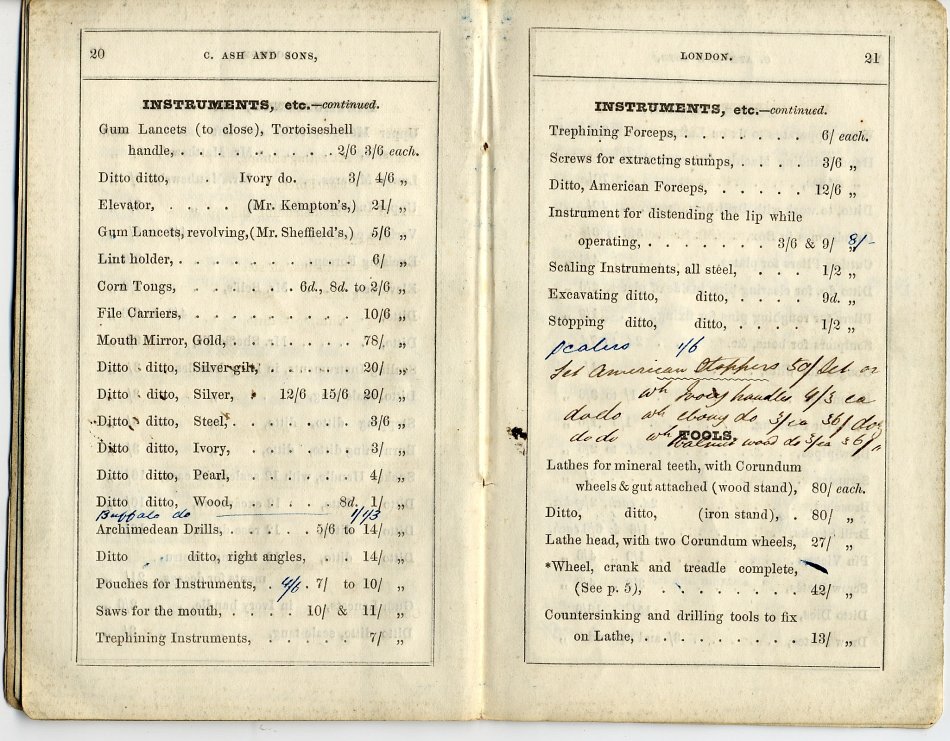 20
C. ASH AND SONS,
INSTRUMENTS, etc.—continued.
Gum Lancets (to close), Tortoiseshell
handle, . . . . . . . . . . 2/6 3/6 each.
Ditto ditto, . Ivory do. 3/ 4/6 „
Elevator, . . . . (Mr. Kempton's,) 21/ „
Gum Lancets, revolving, (Mr. Sheffield's,) 5/6 „
Lint holder, . . . . . . . . . 6/ „
Corn Tongs, . . . . 6d., 8d. to 2/6 „
File Carriers, . . . . . . . . . 10/6 „
Mouth Mirror, Gold, . . . . . . . 78/ „
Ditto ditto, Silver gilt, . . . . . 20/ „
Ditto ditto, Silver, 12/6 15/6 20/ „
Ditto ditto, Steel, . . . . . . 3/6 „
Ditto ditto, Ivory, . . . . . . 3/ „
Ditto ditto, Pearl, . . . . . . 4/6 „
Ditto ditto, Wood, . . . . 8d. 1/ „
Buffalo do 1/ 1/3
Archimedean Drills, . . . . 5/6 to 14/ „
Ditto ditto, right angles, . . 14/ „
Pouches for Instruments, . 4/6 . 7/ to 10/ „
Saws for the mouth, . . . . 10/ & 11/ „
Trephining Instruments, . . . . . . 7/ „
LONDON.
21
INSTRUMENTS, etc.—continued.
Trephining Forceps, . . . . . . . 6/ each.
Screws for extracting stumps, . . . . 3/6 „
Ditto, American Forceps, . . . . . 12/6 „
Instrument for distending the lip while
operating, . . . . . . . 3/6 & 9/ „ 8/-
Scaling Instruments, all steel, . . . . 1/2 „
Excavating ditto, ditto, . . . . 9d. „
Stopping ditto, ditto, . . . . 1/2 „
Scalers 1/6
Set American Stoppers 50/ Set or
wh Ivory handles 4/3 ea
do do wh ebony do 3/ ea 36/ do
do do wh walnut wood do 3/ ea 36/ „
TOOLS.
Lathes for mineral teeth, with Corundum
wheels & gut attached (wood stand), 80/ each.
Ditto, ditto, (iron stand), . 80/ „
Lathe head, with two Corundum wheels, 27/ „
*Wheel, crank and treadle complete,
(See p. 5), . . . . . . . . 42/ „
Countersinking and drilling tools to fix
on Lathe, . . . . . . . . . 13/ „